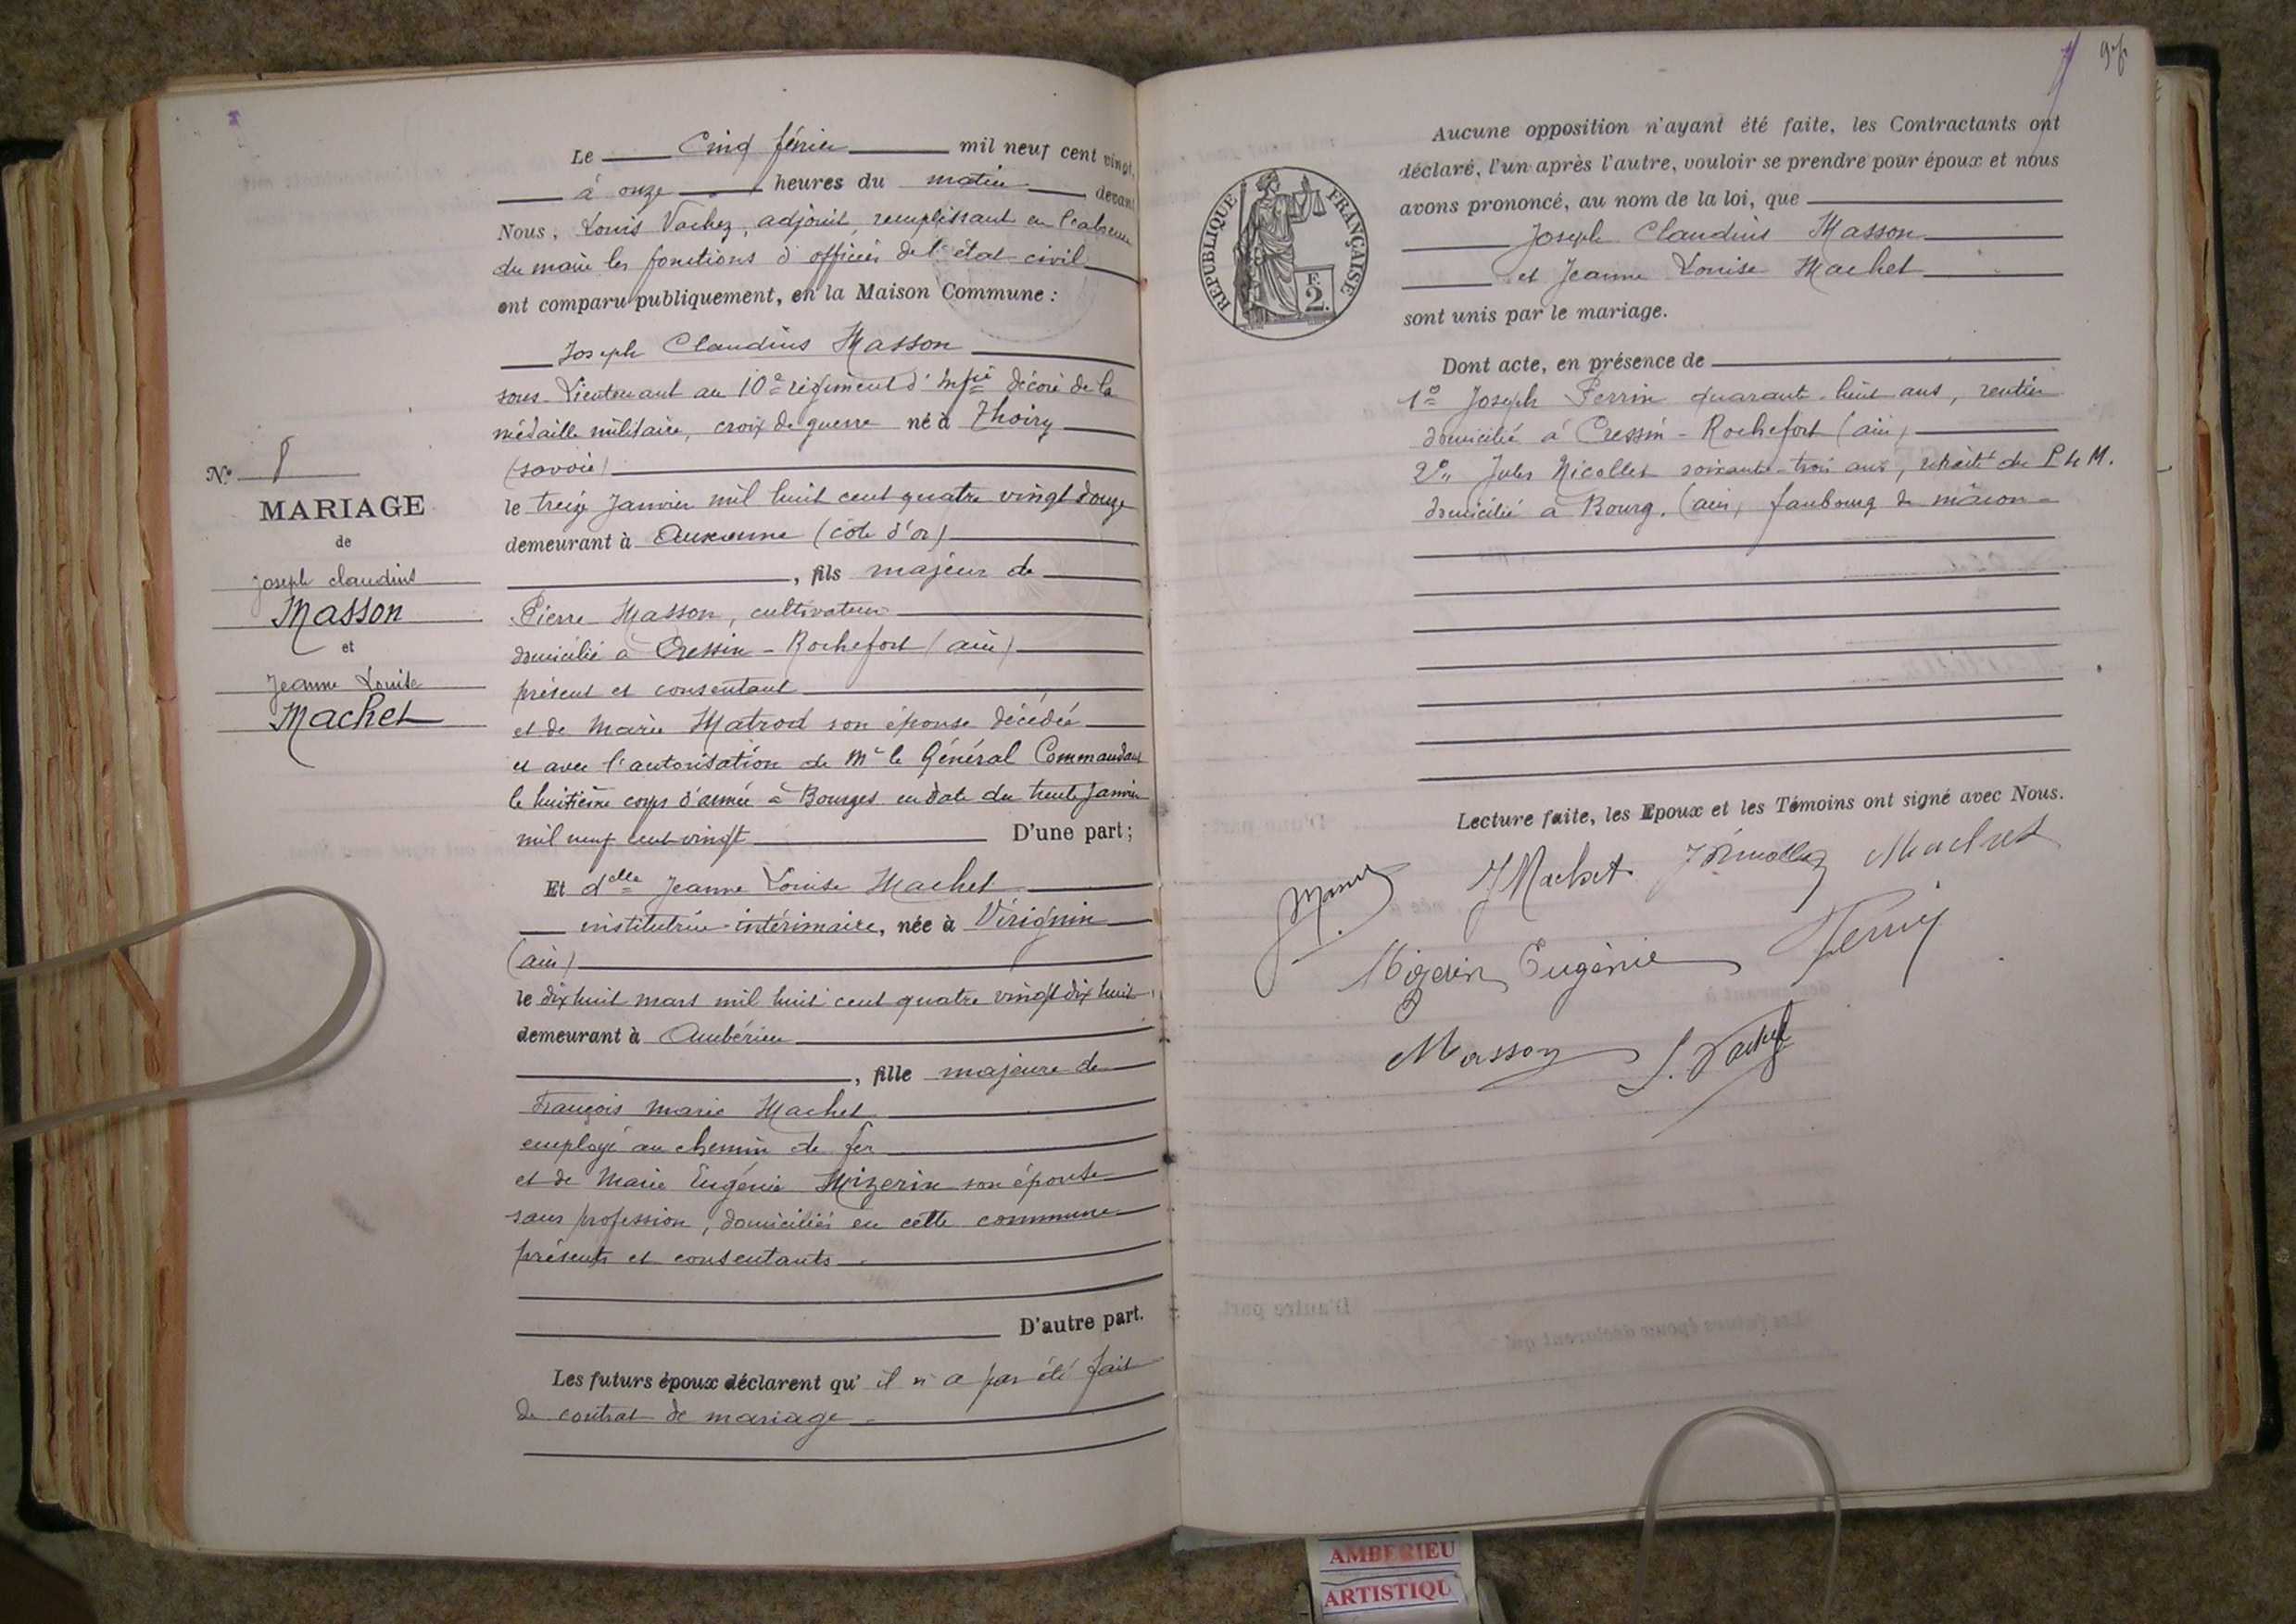 Le Cinq février mil neuf cent vingt,
à onze heures du matin devant
Nous, Louis Vachez, adjoint, remplissant en l'absence
du maire les fonctions d'officier de l'état-civil
ont comparu publiquement, en la Maison Commune :
Joseph Claudius Masson
sous-Lieutenant au 10e régiment d'Infie décoré de la
médaille militaire, croix de guerre né à Thoiry
(savoie)
le treize Janvier mil huit cent quatre vingt douze
demeurant à Auxonne (côte d'or)
, fils majeur de
Pierre Masson, cultivateur
domicilié à Cressin-Rochefort (ain)
présent et consentant
et de Marie Matrod son épouse décédée
et avec l'autorisation de Mr le Général Commandant
le huitième corps d'armée à Bourges en date du trente Janvier
mil neuf cent vingt D'une part ;
Et delle Jeanne Louise Machet
institutrice-intérimaire, née à Virignin
(ain)
le dix huit mars mil huit cent quatre vingt dix huit
demeurant à Ambérieu
, fille majeure de
François Marie Machet
employé au chemin de fer
et de Marie Eugénie Mizerin son épouse
sans profession, domiciliés en cette commune
présents et consentants
D'autre part.
Les futurs époux déclarent qu'il n'a pas été fait
de contrat de mariage
N° 8
MARIAGE
de
Joseph Claudius
Masson
et
Jeanne Louise
Machet
97
Aucune opposition n'ayant été faite, les Contractants ont
déclaré, l'un après l'autre, vouloir se prendre pour époux et nous
avons prononcé, au nom de la loi, que
Joseph Claudius Masson
et Jeanne Louise Machet
sont unis par le mariage.
Dont acte, en présence de
1° Joseph Perrin quarante-huit ans, rentier
domicilié à Cressin-Rochefort (ain)
2° Jules Nicollet soixante-trois ans, retraité du P L M.
domicilié à Bourg, (ain, faubourg de mâcon
Lecture faite, les Epoux et les Témoins ont signé avec Nous.
JMachet Machet
Mizerin Eugénie Perrin
Masson L. Vachez
REPUBLIQUE FRANÇAISE
F.
2.
AMBERIEU
ARTISTIQU